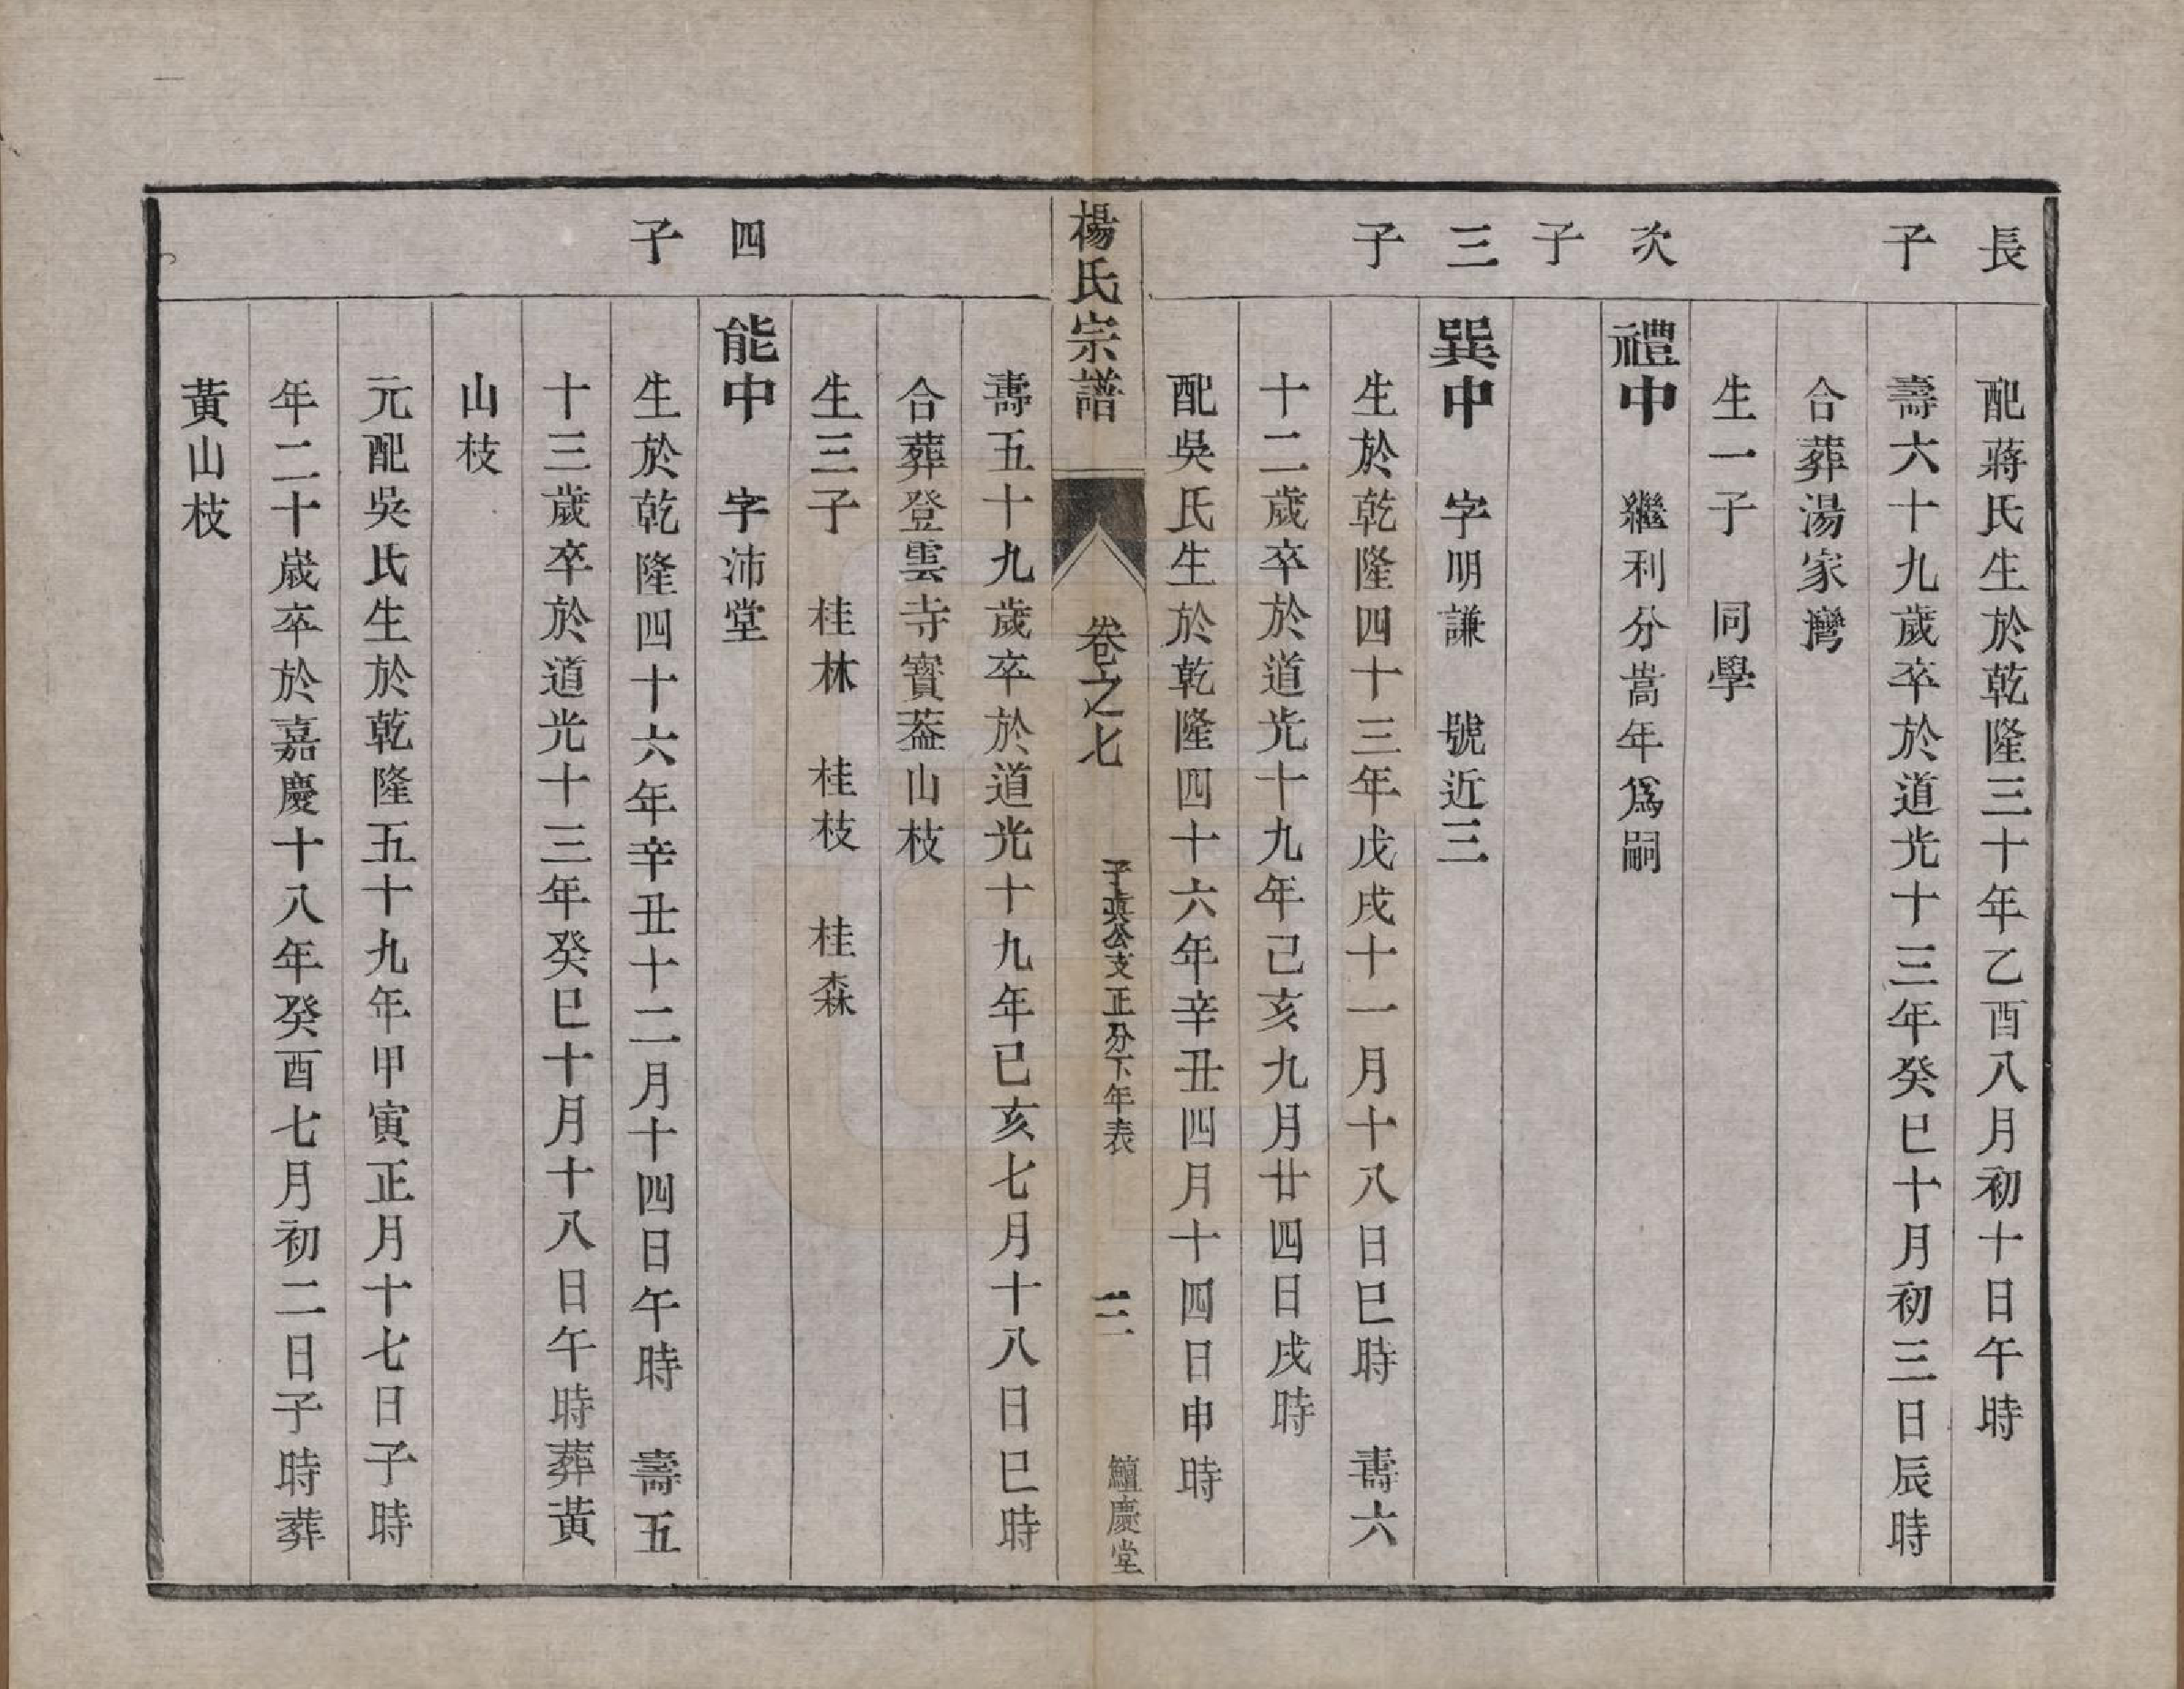 長子
次子
三子
配蔣氏生於乾隆三十年乙酉八月初十日午時
壽六十九歲卒於道光十三年癸巳十月初三日辰時
合葬湯家灣
生一子 同學
禮中 繼利分嵩年爲嗣
巽中 字明謙 號近三
生於乾隆四十三年戊戌十一月十八日巳時 壽六
十二歲卒於道光十九年己亥九月廿四日戌時
配吳氏生於乾隆四十六年辛丑四月十四日申時
楊氏宗譜 卷之七 子真公支正分下年表 三 鱣慶堂
四子
壽五十九歲卒於道光十九年己亥七月十八日巳時
合葬登雲寺寶葢山枝
生三子 桂林 桂枝 桂森
能中 字沛堂
生於乾隆四十六年辛丑十二月十四日午時 壽五
十三歲卒於道光十三年癸巳十月十八日午時葬黃
山枝
元配吳氏生於乾隆五十九年甲寅正月十七日子時
年二十歲卒於嘉慶十八年癸酉七月初二日子時葬
黃山枝